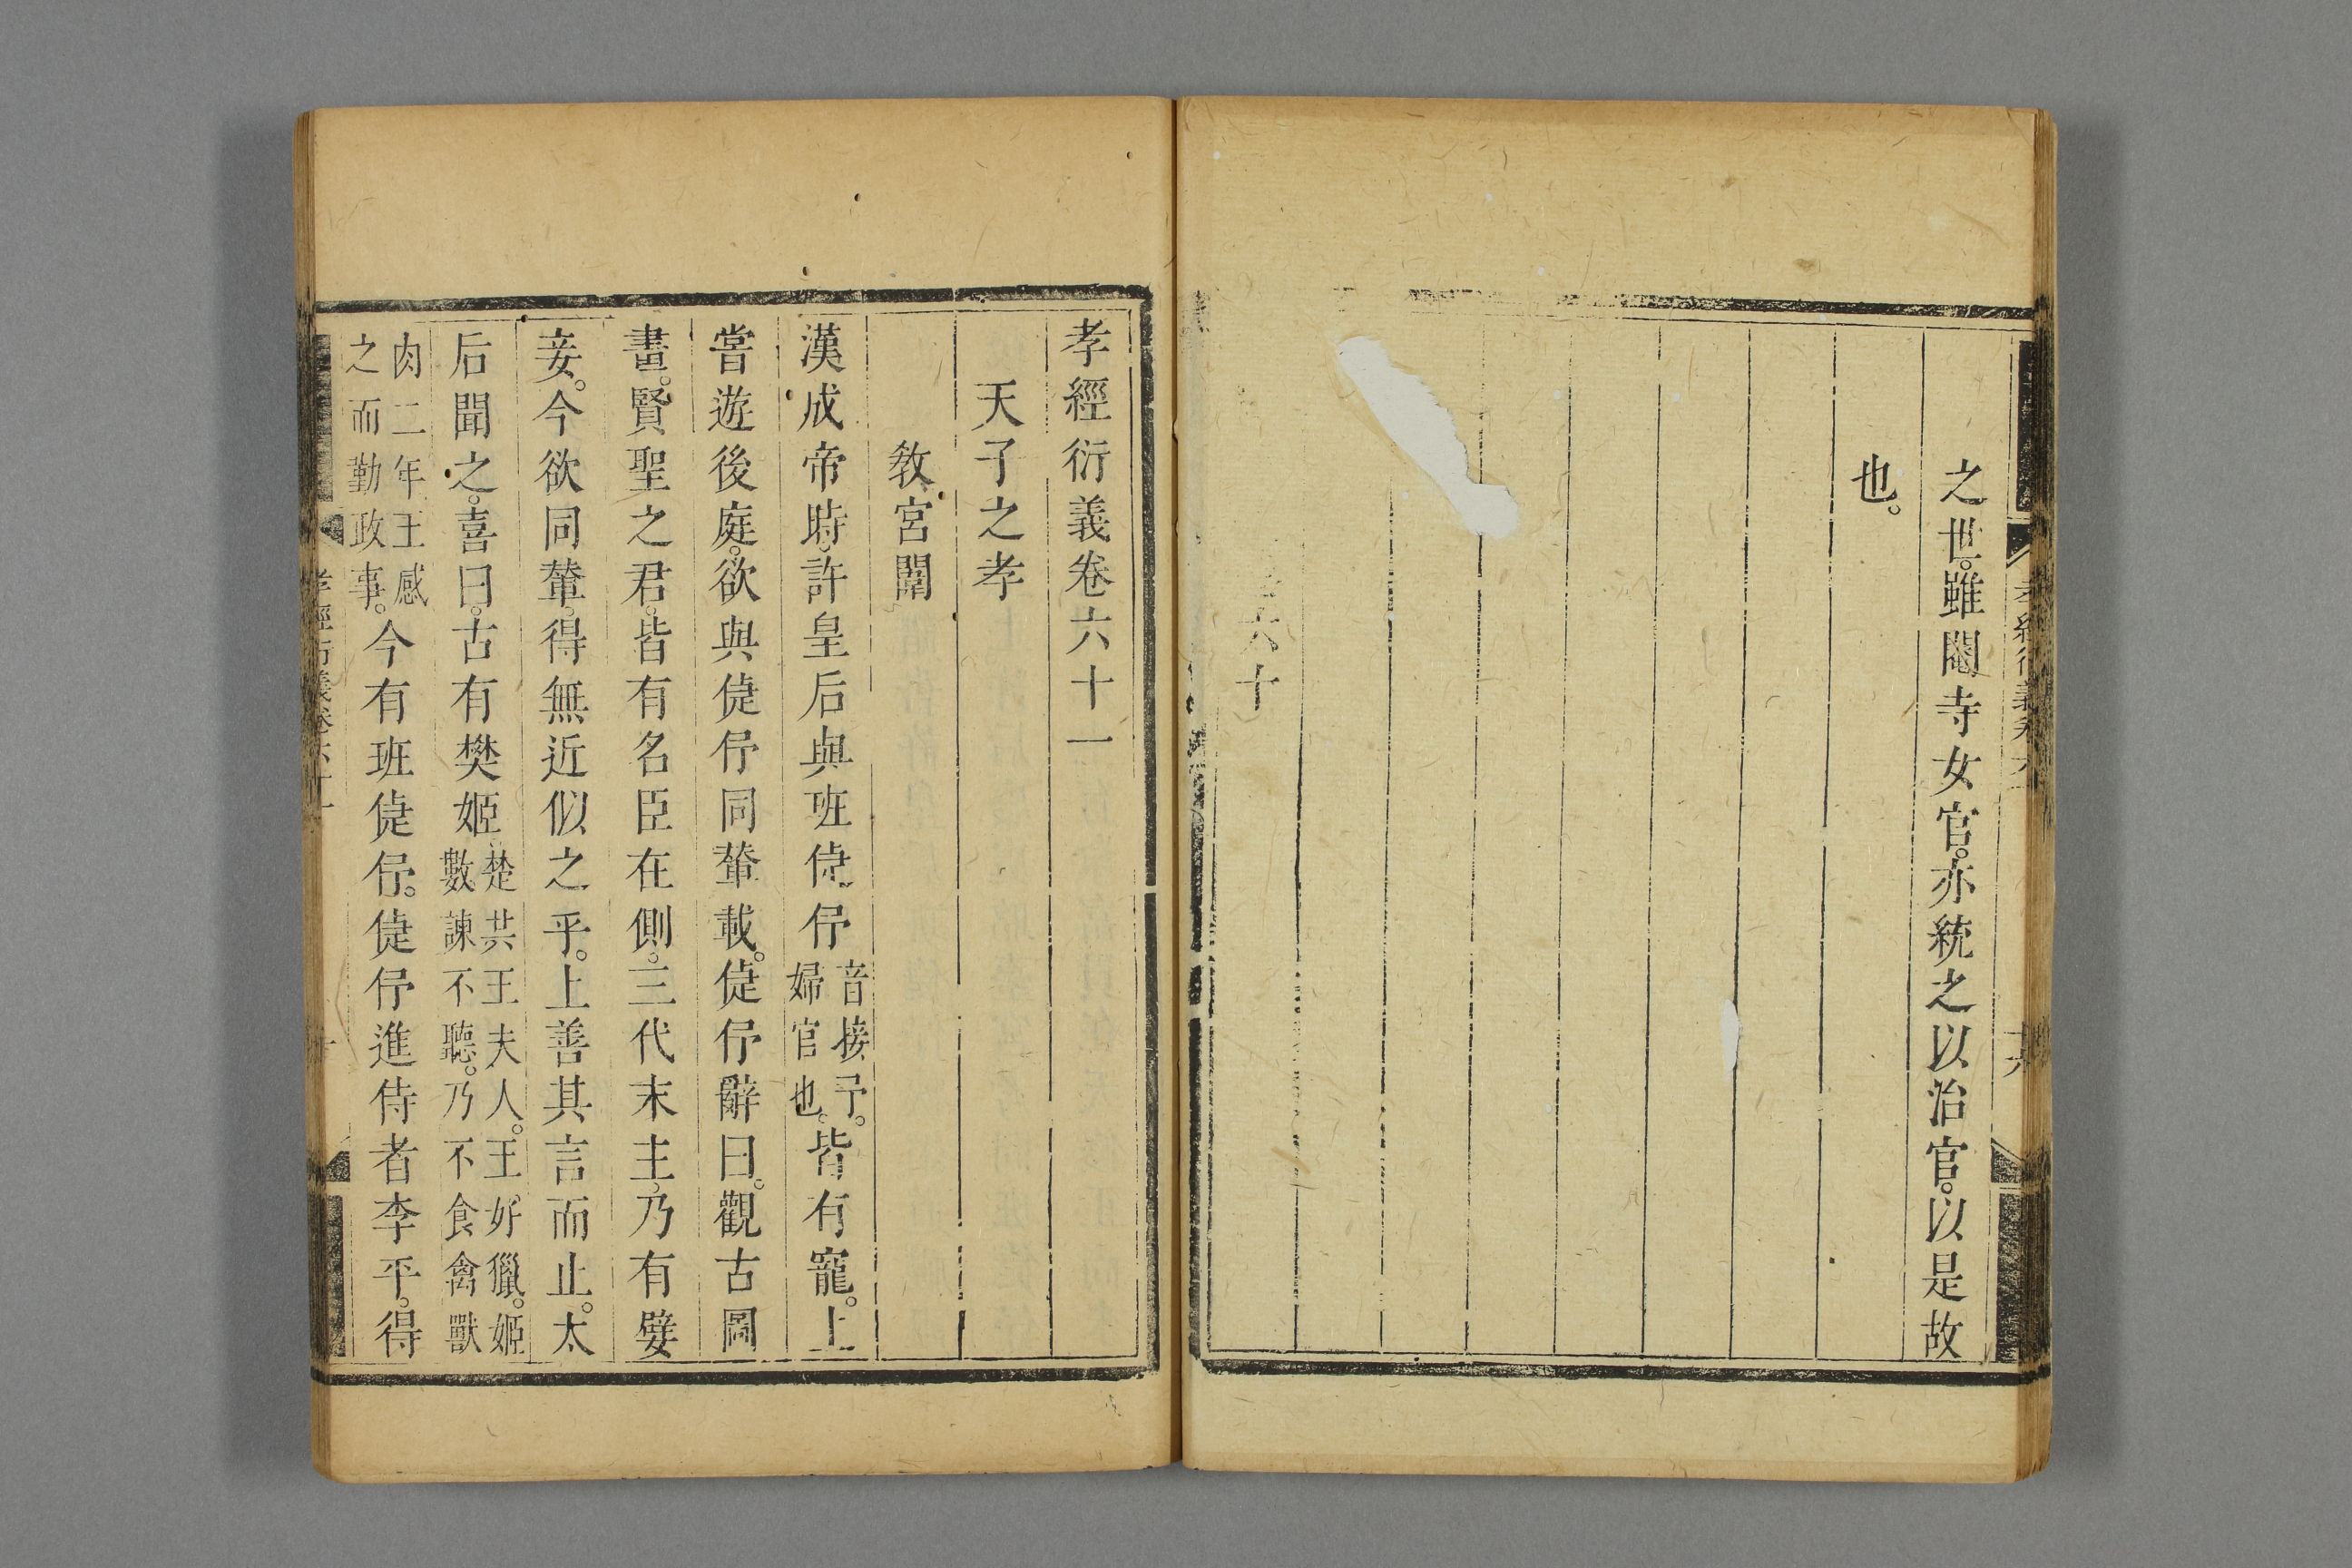 之世。雖閹寺女官。亦統之以治官。以是故
也。
六十
孝經衍義卷六十一
天子之孝
教宮闈
漢成帝時。許皇后與班倢伃音接予。婦官也。皆有寵。上
嘗遊後庭。欲與倢伃同輦載。倢伃辭曰。觀古圖
畫。賢聖之君。皆有名臣在側。三代末主。乃有嬖
妾。今欲同輦。得無近似之乎。上善其言而止。太
后聞之。喜曰。古有樊姬。楚共王夫人。王好獵。姬數諫不聽。乃不食禽獸
肉二年王感之而勤政事。今有班倢伃。倢伃進侍者李平。得
孝經衍義卷六十一